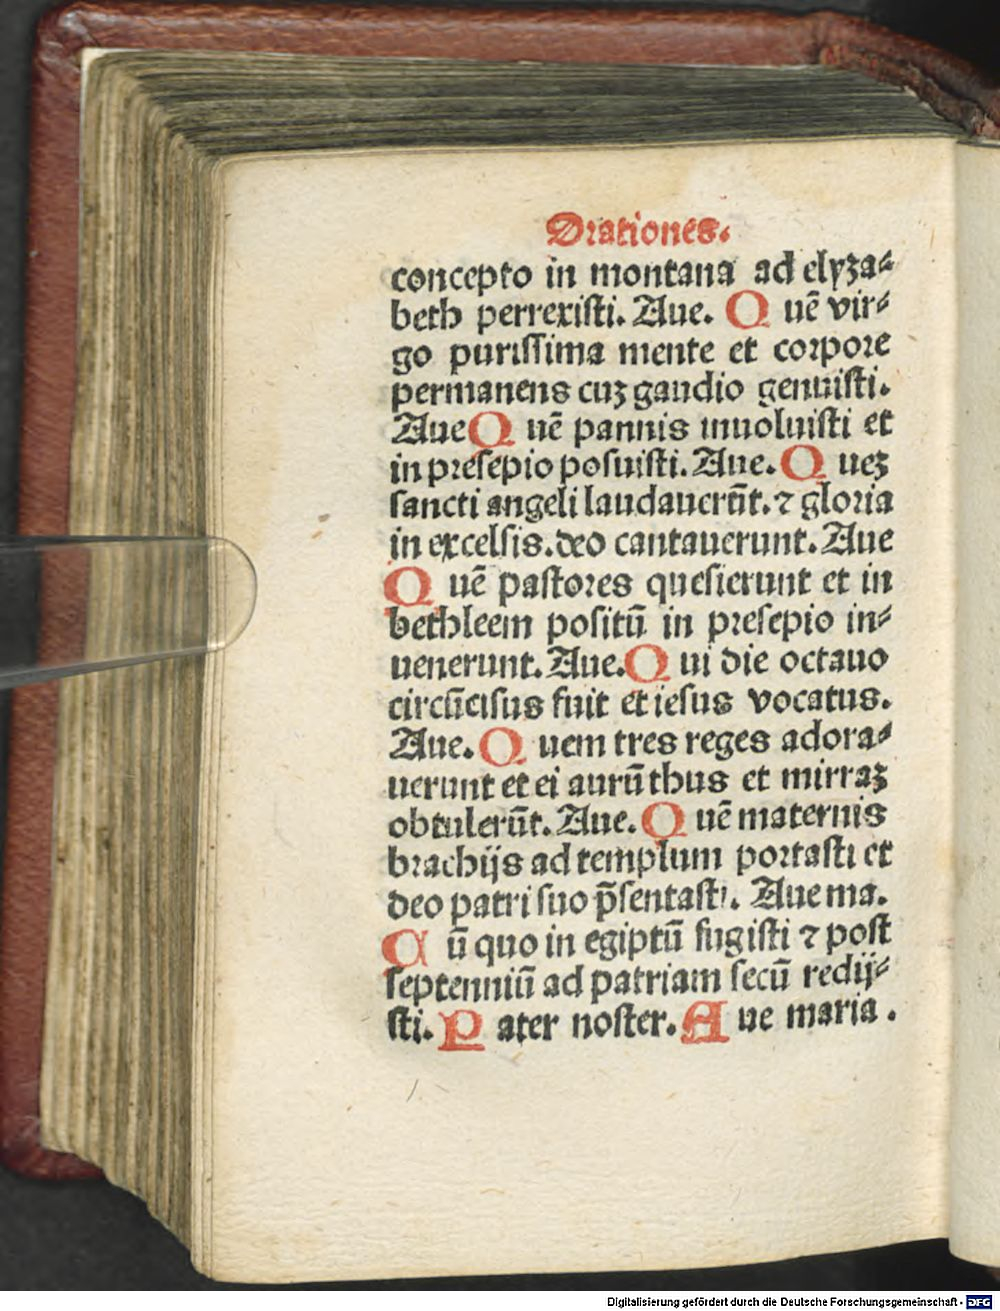 Orationes.
concepto in montana ad elyza⸗
beth perrexisti. Aue. Q uē vir⸗
go purissima mente et corpore
permanens cuꝫ gaudio genuisti.
Aue Q uē pannis inuoluisti et
in presepio posuisti. Aue. Q ueꝫ
sancti angeli laudauerūt. ⁊ gloria
in excelsis. deo cantauerunt. Aue
Q uē pastores quesierunt et in
bethleem positū in presepio in⸗
uenerunt. Aue. Q ui die octauo
circūcisus fuit et iesus vocatus.
Aue. Q uem tres reges adora⸗
uerunt et ei aurū thus et mirraꝫ
obtulerūt. Aue. Q uē maternis
brachijs ad templum portasti et
deo patri suo p̄sentasti. Aue ma.
C ū quo in egiptū fugisti ⁊ post
septenniū ad patriam secū redij⸗
sti. P ater noster. A ue maria.
Digitalisierung gefördert durch die Deutsche Forschungsgemeinschaft - DFG